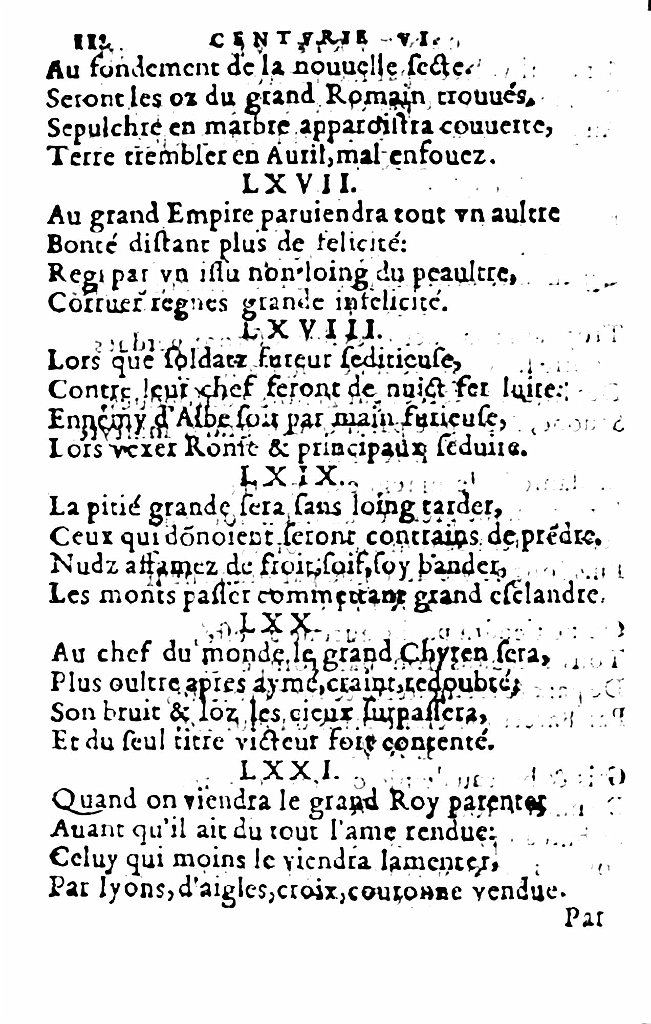 112. CENTVRIE VI.
Au fondement de la nouuelle ſecte.
Seront les oz du grand Romain trouués,
Sepulchre en marbre apparoiſtra couuerte,
Terre trembler en Auril, mal enfouez.
LXVII.
Au grand Empire paruiendra tout vn aultre
Bonté diſtant plus de felicité:
Regi par vn iſſu non loing du peaultre,
Corruer regnes grande infelicité.
LXVIII.
Lors que ſoldatz fureur ſeditieuſe,
Contre leur chef feront de nuict fer luire:
Ennemy d'Albe ſoit par main furieuſe,
Lors vexer Rome & principaux ſeduire.
LXIX.
La pitié grande ſera ſans loing tarder,
Ceux qui dōnoient ſeront contrains de prēdre,
Nudz affamez de froit, ſoif, ſoy bander,
Les monts paſſer commettant grand eſclandre.
LXX.
Au chef du monde le grand Chyren ſera,
Plus oultre apres aymé, craint, redoubté,
Son bruit & loz les cieux ſurpaſſera,
Et du ſeul titre victeur fort contenté.
LXXI.
Quand on viendra le grand Roy parenter
Auant qu'il ait du tout l'ame rendue:
Celuy qui moins le viendra lamenter,
Par lyons, d'aigles, croix, couronne vendue.
Par